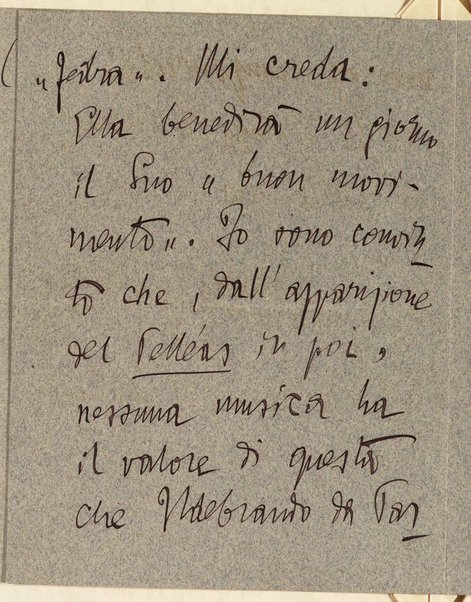 „Fedra„. Mi creda:
Ella benedirà un giorno
il Suo „ buon movi-
mento„. Io sono convin
to che, dall'apparizione
del Pelléas in poi,
nessuna musica ha
il valore di questa
che Ildebrando da Par